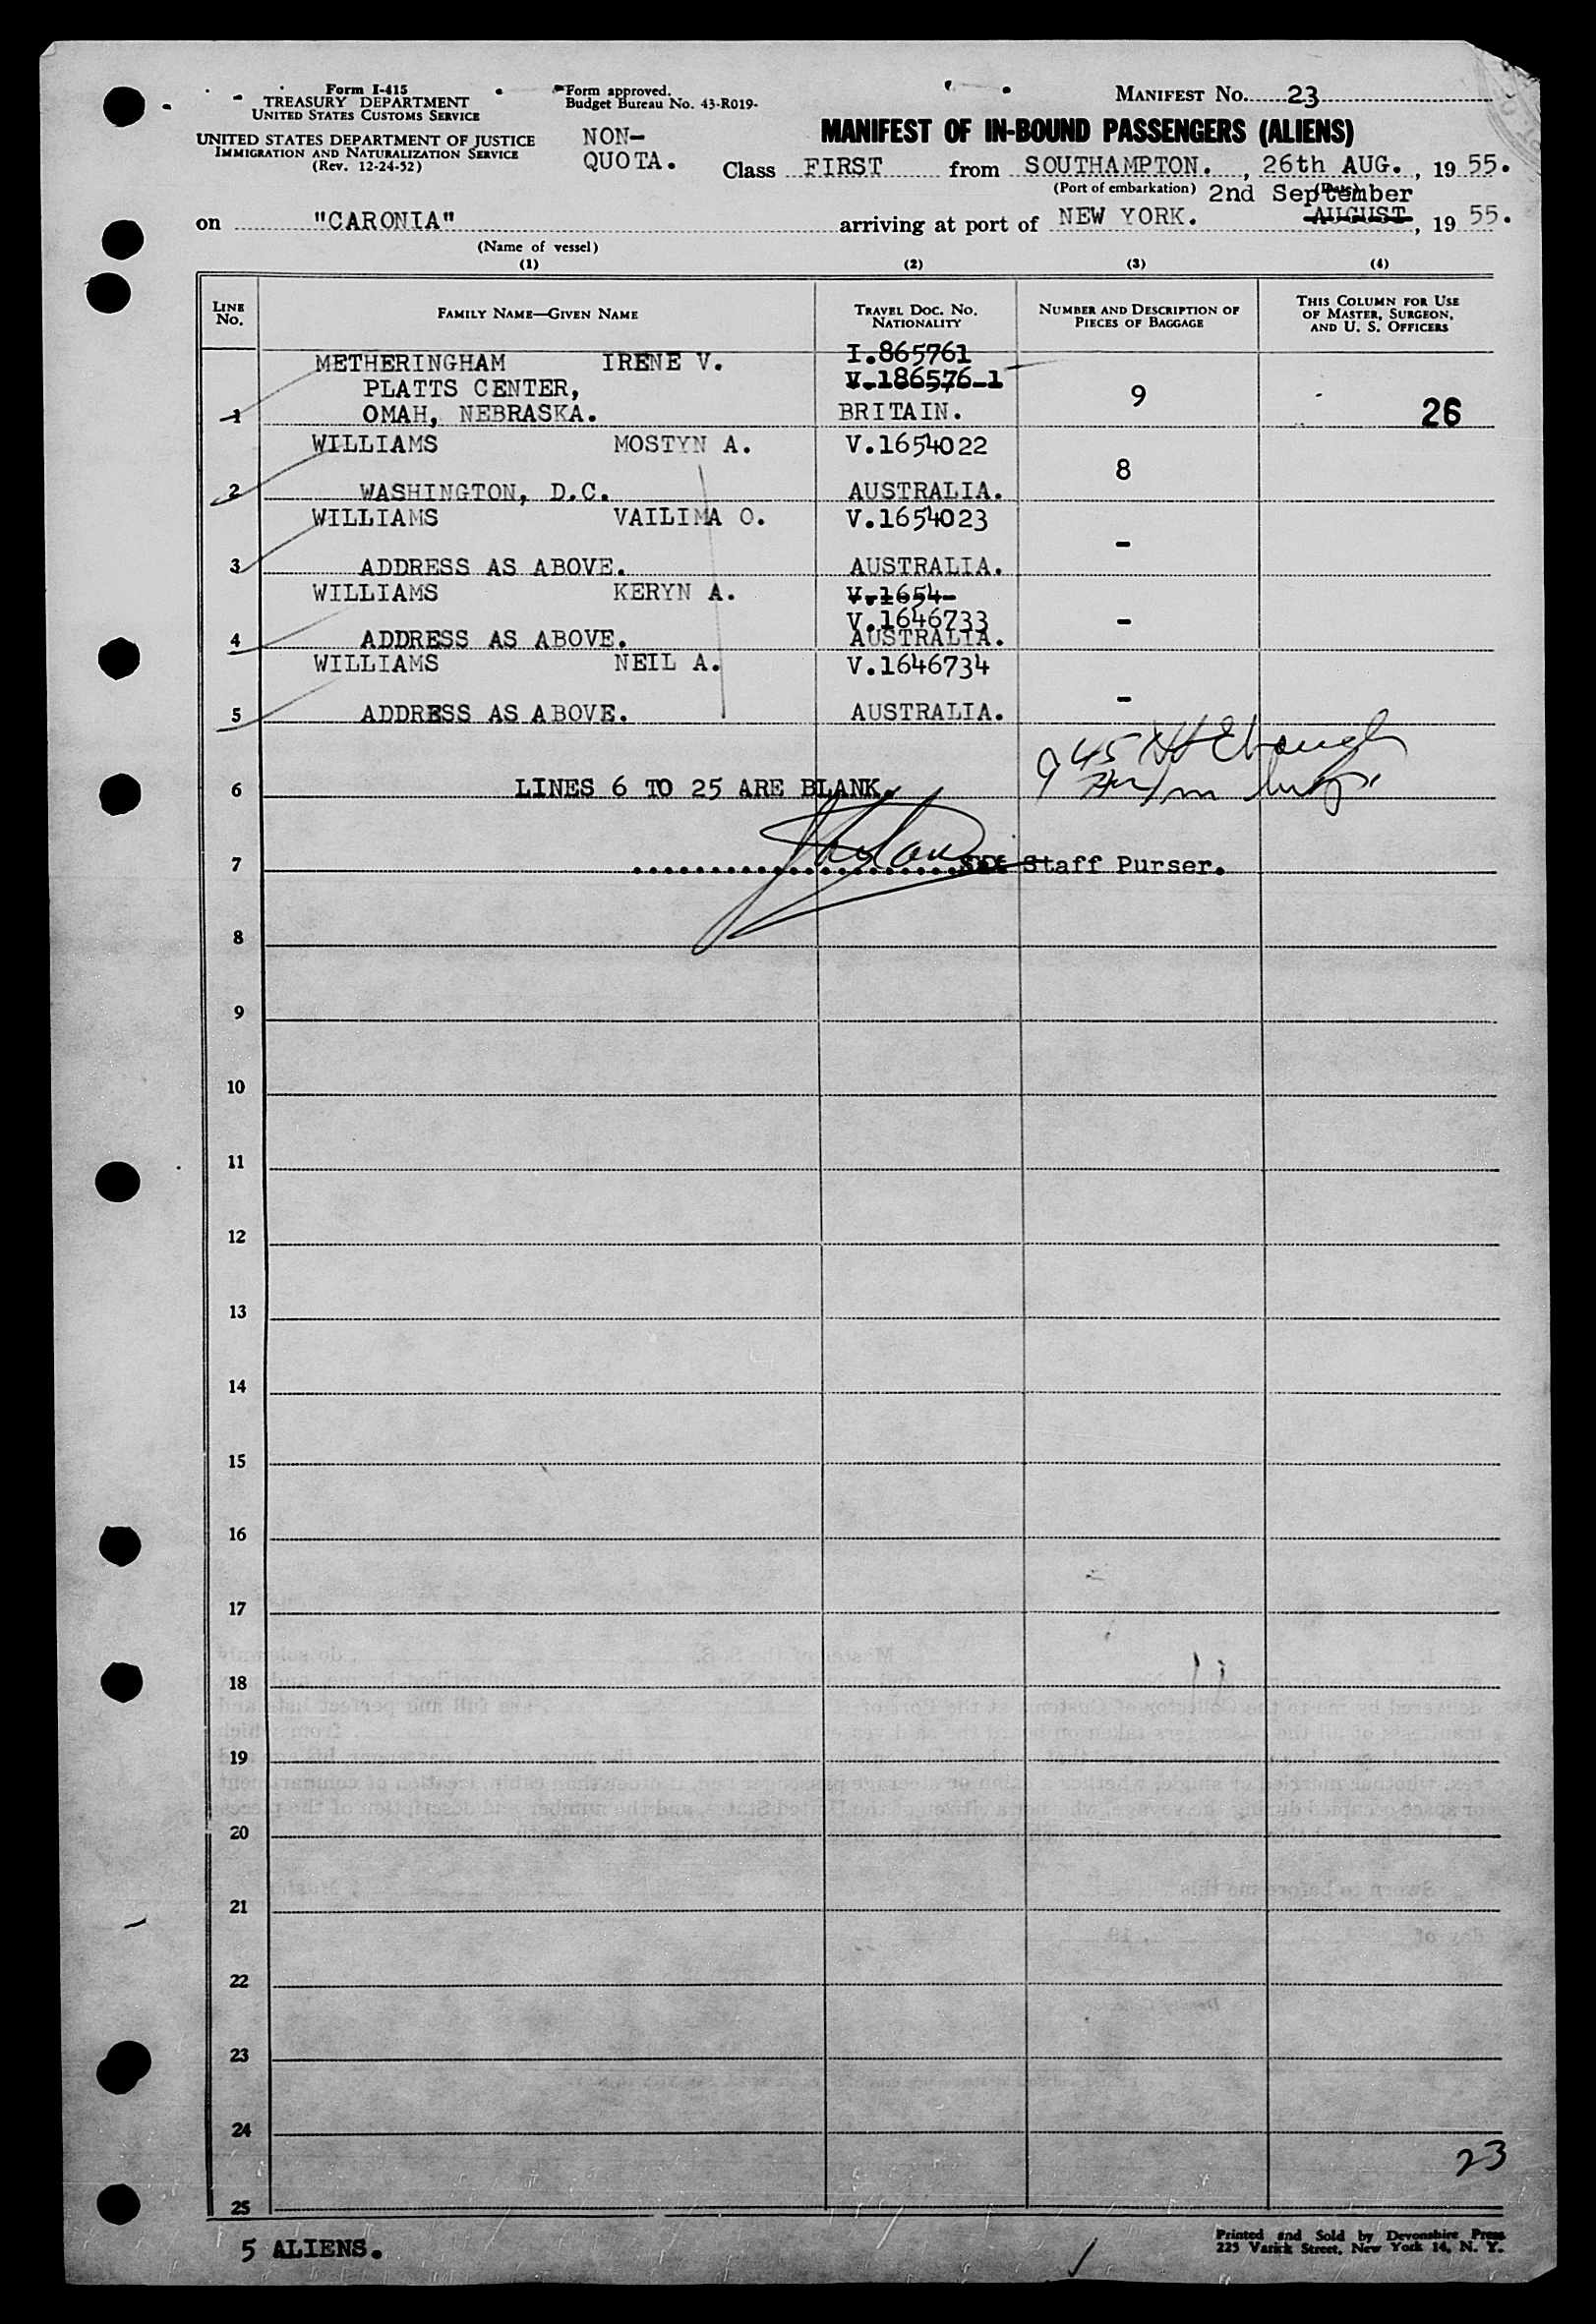 Form I-415
TREASURY DEPARTMENT
UNITED STATES CUSTOMS SERVICE
UNITED STATES DEPARTMENT OF JUSTICE
IMMIGRATION AND NATURALIZATION SERVICE
(Rev. 12-24-52)
Form approved.
Budget Bureau No. 43-R019-
NON-
QUOTA.
MANIFEST NO. 23
MANIFEST OF IN-BOUND PASSENGERS (ALIENS)
Class FIRST from SOUTHAMPTON. , 26th AUG. , 19 55.
(Port of embarkation) (Date)
2nd September
on "CARONIA" arriving at port of NEW YORK. AUGUST , 19 55.
(Name of vessel)
(1) (2) (3) (4)
LINE NO.
FAMILY NAME—GIVEN NAME
TRAVEL DOC. NO.
NATIONALITY
NUMBER AND DESCRIPTION OF
PIECES OF BAGGAGE
THIS COLUMN FOR USE
OF MASTER, SURGEON,
AND U. S. OFFICERS
METHERINGHAM IRENE V. I.865761
PLATTS CENTER, V.186576-1
1 OMAH, NEBRASKA. BRITAIN. 9 26
WILLIAMS MOSTYN A. V.1654022
2 WASHINGTON, D.C. AUSTRALIA. 8
WILLIAMS VAILIMA O. V.1654023
3 ADDRESS AS ABOVE. AUSTRALIA. -
WILLIAMS KERYN A. V.1654-
V.1646733
4 ADDRESS AS ABOVE. AUSTRALIA. -
WILLIAMS NEIL A. V.1646734
5 ADDRESS AS ABOVE. AUSTRALIA. -
6 LINES 6 TO 25 ARE BLANK.
7 Staff Purser.
8
9
10
11
12
13
14
15
16
17
18
19
20
21
22
23
24
23
25
5 ALIENS.
Printed and Sold by Devonshire Press
225 Varick Street, New York 14, N. Y.